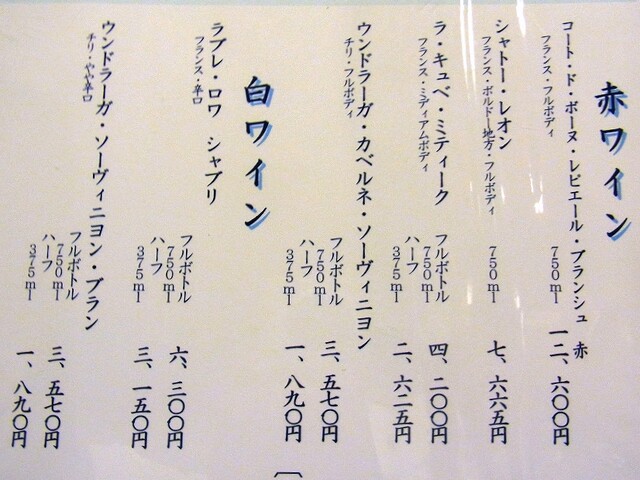 赤ワイン
コート・ド・ボーヌ・レピエール・ブランシュ 赤
フランス・フルボディ 750ml 一二、六〇〇円
シャトー・レオン
フランス・ボルドー地方・フルボディ 750ml 七、六六五円
ラ・キュベ・ミティーク
フランス・ミディアムボディ
フルボトル 750ml 四、二〇〇円
ハーフ 375ml 二、六二五円
ウンドラーガ・カベルネ・ソーヴィニヨン
チリ・フルボディ
フルボトル 750ml 三、五七〇円
ハーフ 375ml 一、八九〇円
白ワイン
ラブレ・ロワ シャブリ
フランス・辛口
フルボトル 750ml 六、三〇〇円
ハーフ 375ml 三、一五〇円
ウンドラーガ・ソーヴィニヨン・ブラン
チリ・やや辛口
フルボトル 750ml 三、五七〇円
ハーフ 375ml 一、八九〇円